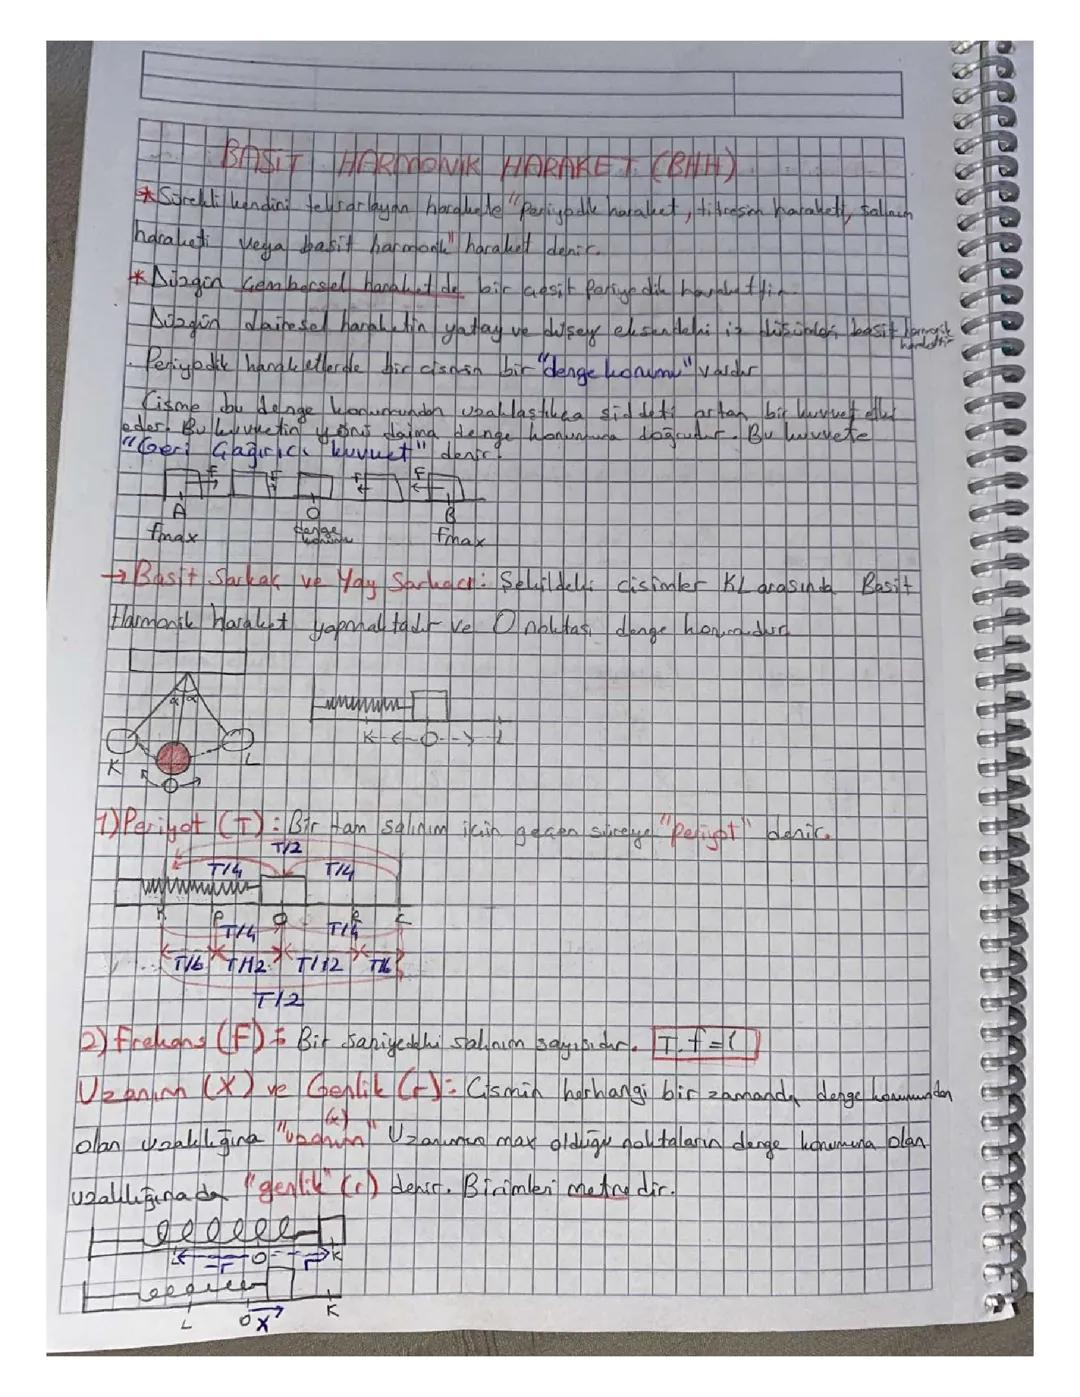 BASIT HARMONIK HARAKET (BHH)
* Sürekli kendini tekrarlayan harakete "Periyodik haraket, titresim haraketi, salınım
haraketi veya basit harmonik" haraket denir.
* Düzgün Çembersel haraket de bir çeşit Periyodik harakettir.
Düzgün dairesel haraketin yatay ve düşey eksendeki iz düşümleri basit harmonik
harakettir
Periyodik haraketlerde bir cismin bir "denge konumu" vardır
Cisme bu denge konumundan uzaklaştıkça şiddeti artan bir kuvvet etki
eder. Bu kuvvetin yönü daima denge konumuna doğrudur. Bu kuvvete
"Geri Çağırıcı kuvvet" denir.
F F F F
A O B
fmax denge konumu fmax
→ Basit Sarkaç ve Yay Sarkacı: Şekildeki cisimler KL arasında Basit
Harmonik Haraket yapmaktadır ve O noktası denge konumudur
α α
K O L
K O L
1) Periyot (T): Bir tam salınım için geçen süreye "Periyot" denir.
T/2
T/4 T/4
K P O R L
T/4 T/4
T/6 T/12 T/12 T/6
T/2
2) Frekans (F): Bir saniyedeki salınım sayısıdır. T.f=1
Uzanım (X) ve Genlik (r): Cismin herhangi bir zamanda denge konumundan
(x)
olan uzaklığına "uzanım" Uzanımın max olduğu noktaların denge konumuna olan
uzaklığına da "genlik" (r) denir. Birimleri metredir.
L O K
-r r
L O K
X